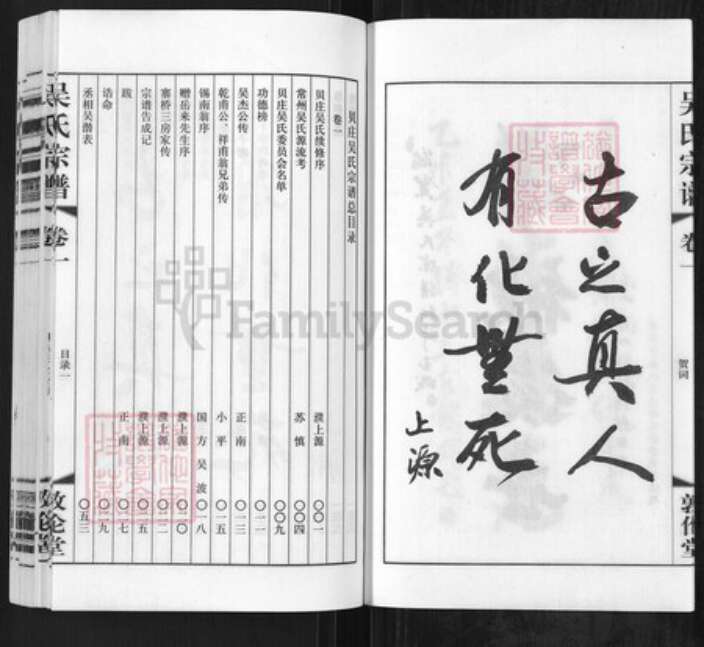 吴氏宗谱
卷一
贺词
敦伦堂
古之真人
有化无死
上源
贝庄吴氏宗谱总目录
卷一
贝庄吴氏续修序 濮上源 〇〇一
常州吴氏源流考 苏慎 〇〇四
贝庄吴氏委员会名单 〇〇九
功德榜 〇一一
吴杰公传 正南 〇一三
乾甫公、祥甫翁兄弟传 小平 〇一五
锡南翁序 国方 吴波 〇一八
赠岳来先生序 濮上源 〇二〇
寨桥三房家传 濮上源 〇二二
宗谱告成记 濮上源 〇二五
跋 正南 〇二七
诰命 〇二九
丞相吴潜表 〇五三
吴氏宗谱
卷一
目录一
敦伦堂
FamilySearch